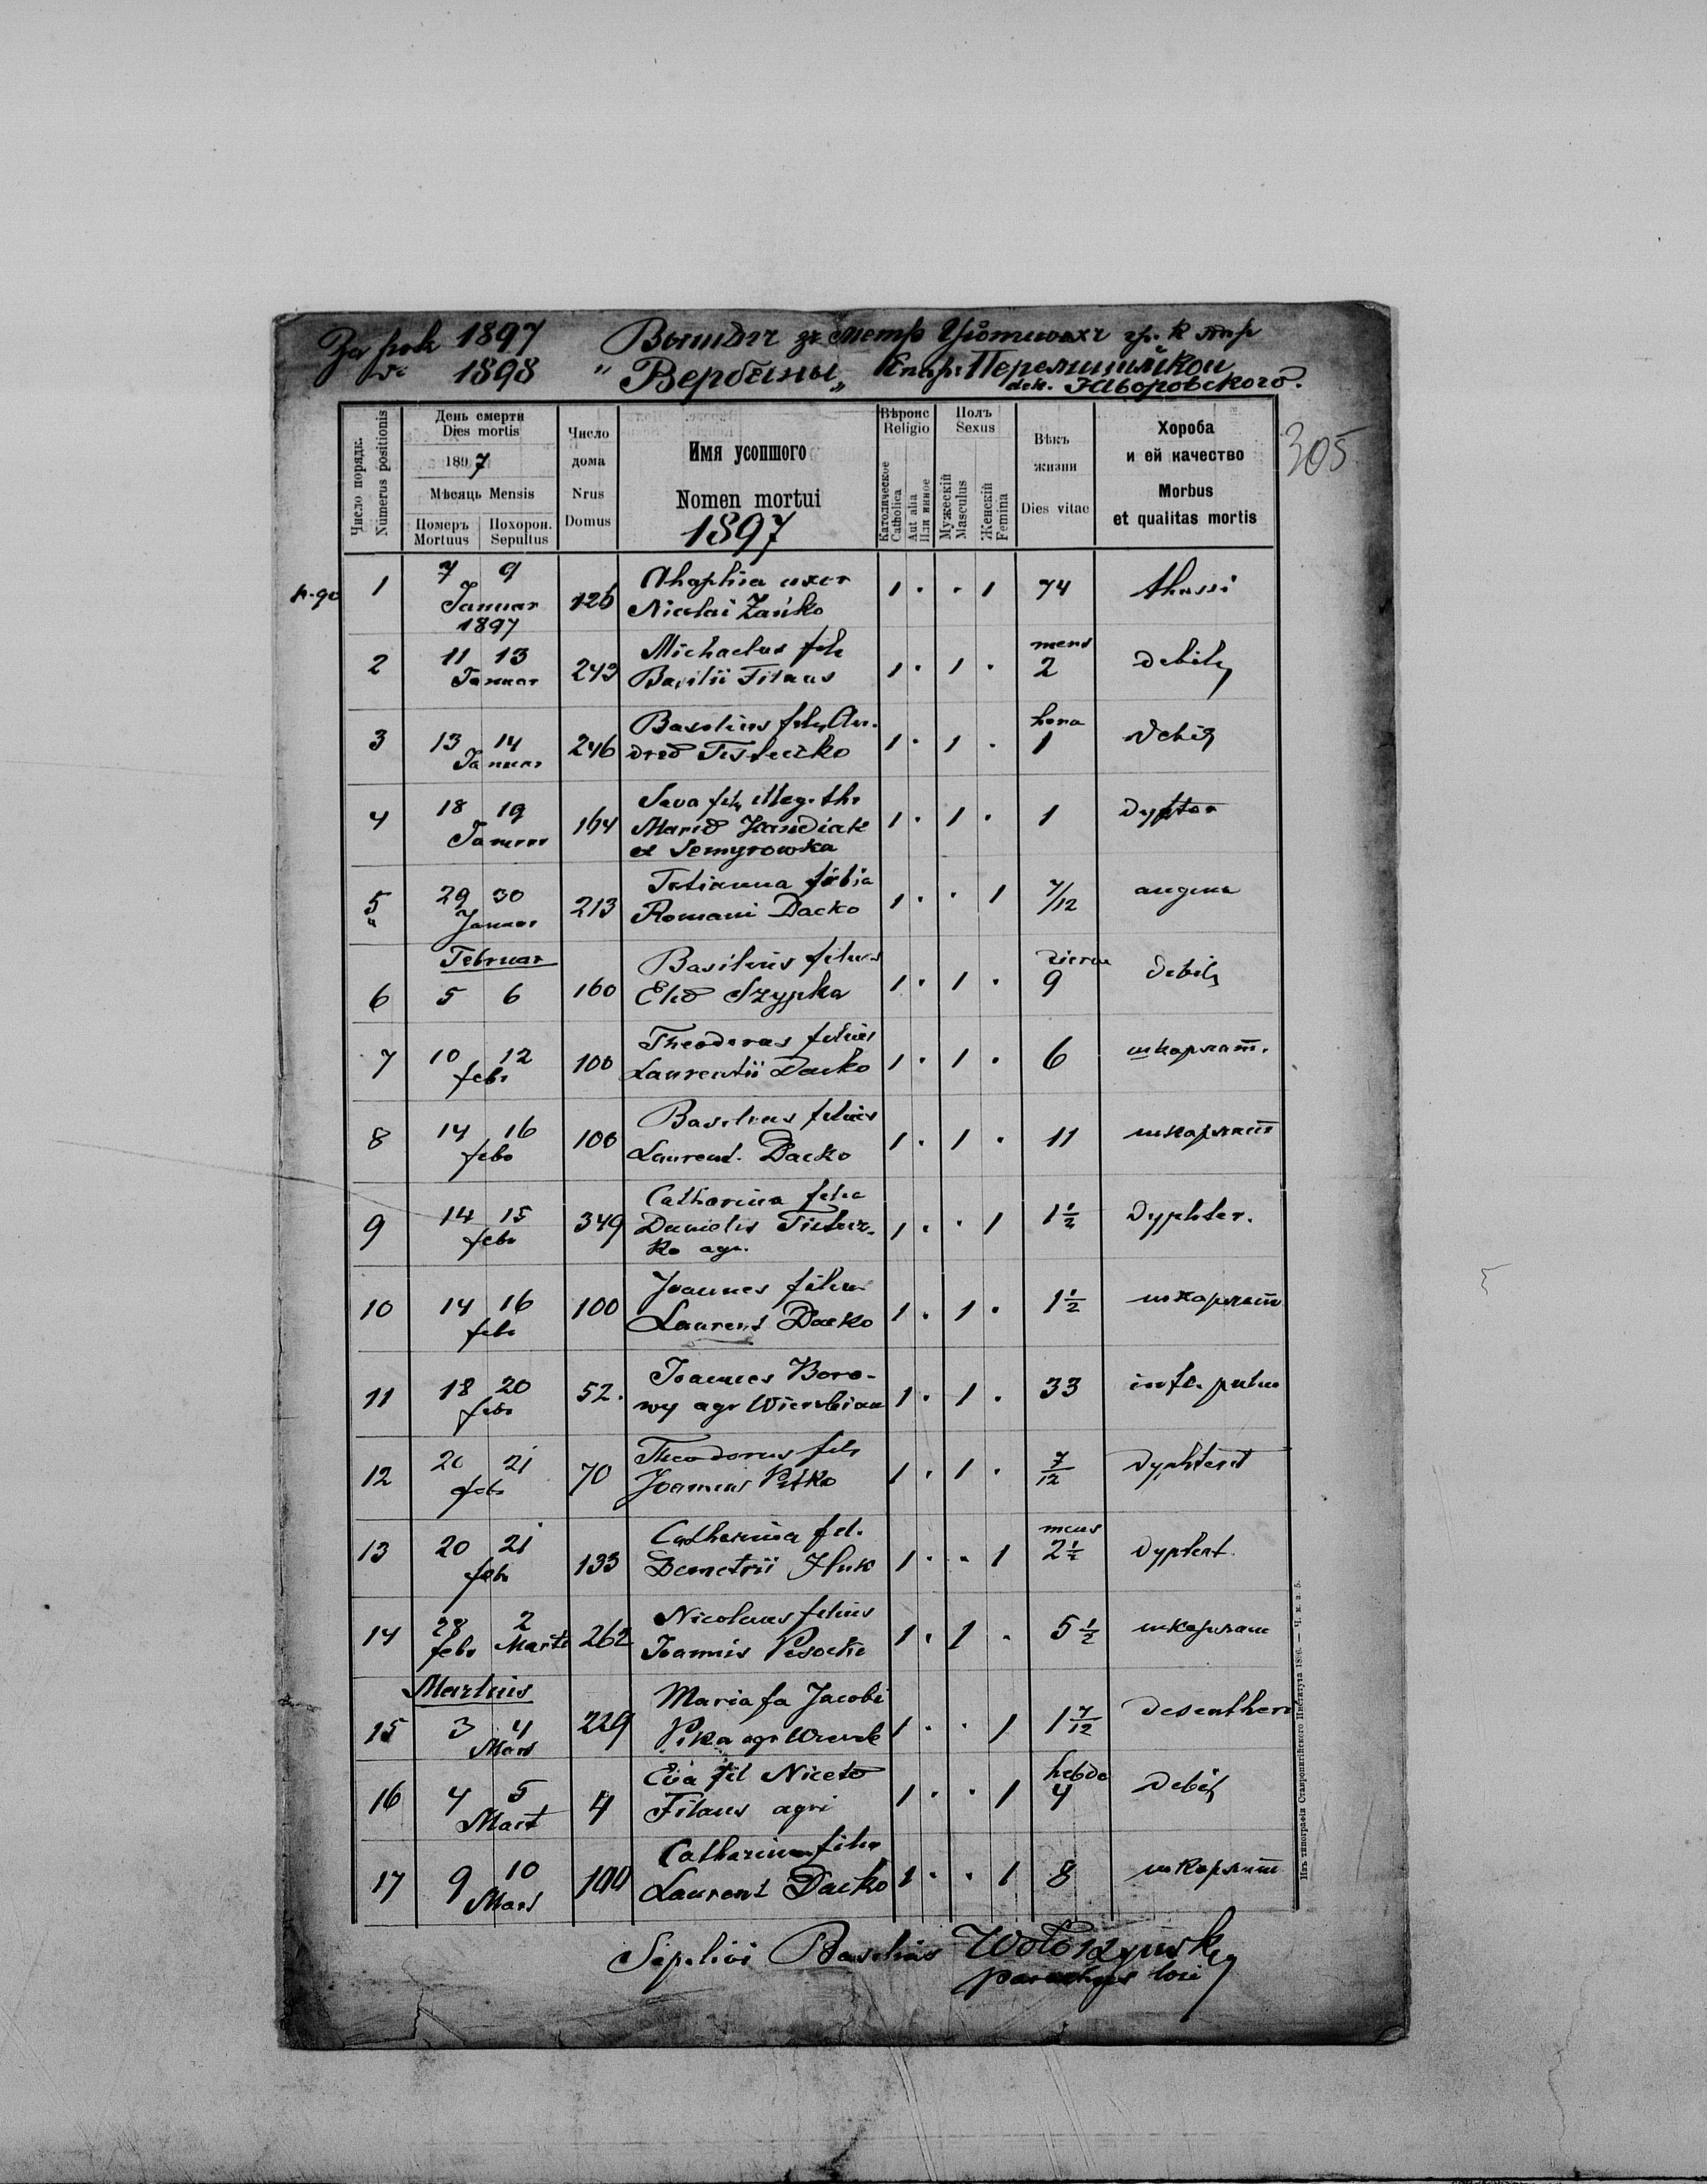 За рок 1897 Вытягъ зъ метр гр. к. пар
1898 "Вербяны" Епар. Перемишлской
дек. Яворовского.
305
Число порядк.
Numerus positionis
День смерти
Dies mortis
1897
Мѣсяць Mensis
Померъ Mortuus
Похорон. Sepultus
Число дома
Nrus Domus
Имя усопшого
Nomen mortui
1897
Вѣроис
Religio
Католическое
Catholica
Aut alia
Или инное
Полъ
Sexus
Мужескій
Masculus
Женскій
Femina
Вѣкъ жизни
Dies vitae
Хороба
и ей качество
Morbus
et qualitas mortis
1 7 9 Januar 1897 126 Ahaphia uxor
Nicolai Zańko 1 · · 1 74 thussi
2 11 13 Januar 243 Michaelus fil
Basilii Fitaus 1 · 1 · mens 2 debil
3 13 14 Januar 246 Basilius fil An-
1 · 1 · hora 1 debil
4 18 19 Januar 164 Sava fil illeg. thr
Mariæ Handiak
et Semyrowka 1 · 1 · 1 dyfter
5 29 30 Januar 213 Tatianna filia
Romani Dacko 1 · · 1 7/12 angina
Februar
6 5 6 160 Basilius filius
Eliæ Szypka 1 · 1 · 9 debil
7 10 12 febr 100 Theodorus filius
Laurentii Dacko 1 · 1 · 6 шкарлат.
8 14 16 febr 100 Basilius filius
Laurent. Dacko 1 · 1 · 11 шкарлат
9 14 15 febr 349 Catharina filia
Danielis
ko agr. 1 · · 1 1½ dyphter.
10 14 16 febr 100 Joannes filius
Laurent Dacko 1 · 1 · 1½ шкарлат
11 18 20 febr 52. Joannes Boro-
wy agr Wierzbian 1 · 1 · 33 infl. pulm
12 20 21 febr 70 Theodorus fil
Joannis Petko 1 · 1 · 7/12 dyphterit
13 20 21 febr 133 Catharina fil.
Demetrii Hluk 1 · · 1 mens 2½ dyptert.
14 28 febr 2 Marti 262 Nicolaus filius
Joannis Pesocki 1 · 1 · 5½ шкарлат
Martius
15 3 4 Mart 229 Maria fa Jacobi
Pika agr Wierzb 1 · · 1 1 7/12 desentheri
16 4 5 Mart 4 Eva fil Nicetæ
Fitaus agri 1 · · 1 hebdo 4 debil
17 9 10 Mart 100 Catharina filia
Laurent Dacko 1 · · 1 8 шкарлат
Sepelivi Basilius Wołoszynsky
parochus loci
Изъ типографіи Ставропигійского Института 1896. — Ч. м. а. 5.